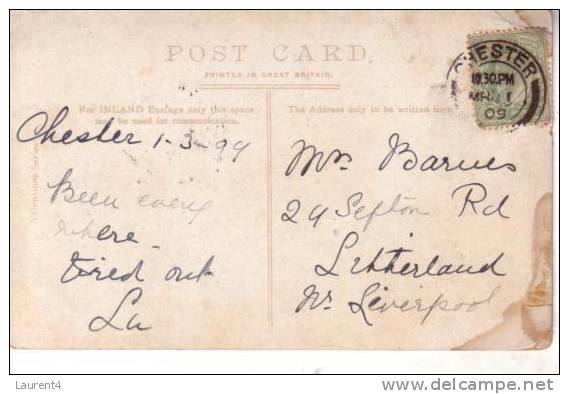 POST CARD.
PRINTED IN GREAT BRITAIN.
For INLAND Postage only this space
may be used for communication.
The Address only to be written here.
CHESTER
10.30.PM
MR 1
09
Chester 1-3-99
Been every
where
tired out
Lu
Mrs Barnes
29 Sefton Rd
Litherland
Nr Liverpool
Laurent4
delcampe.net